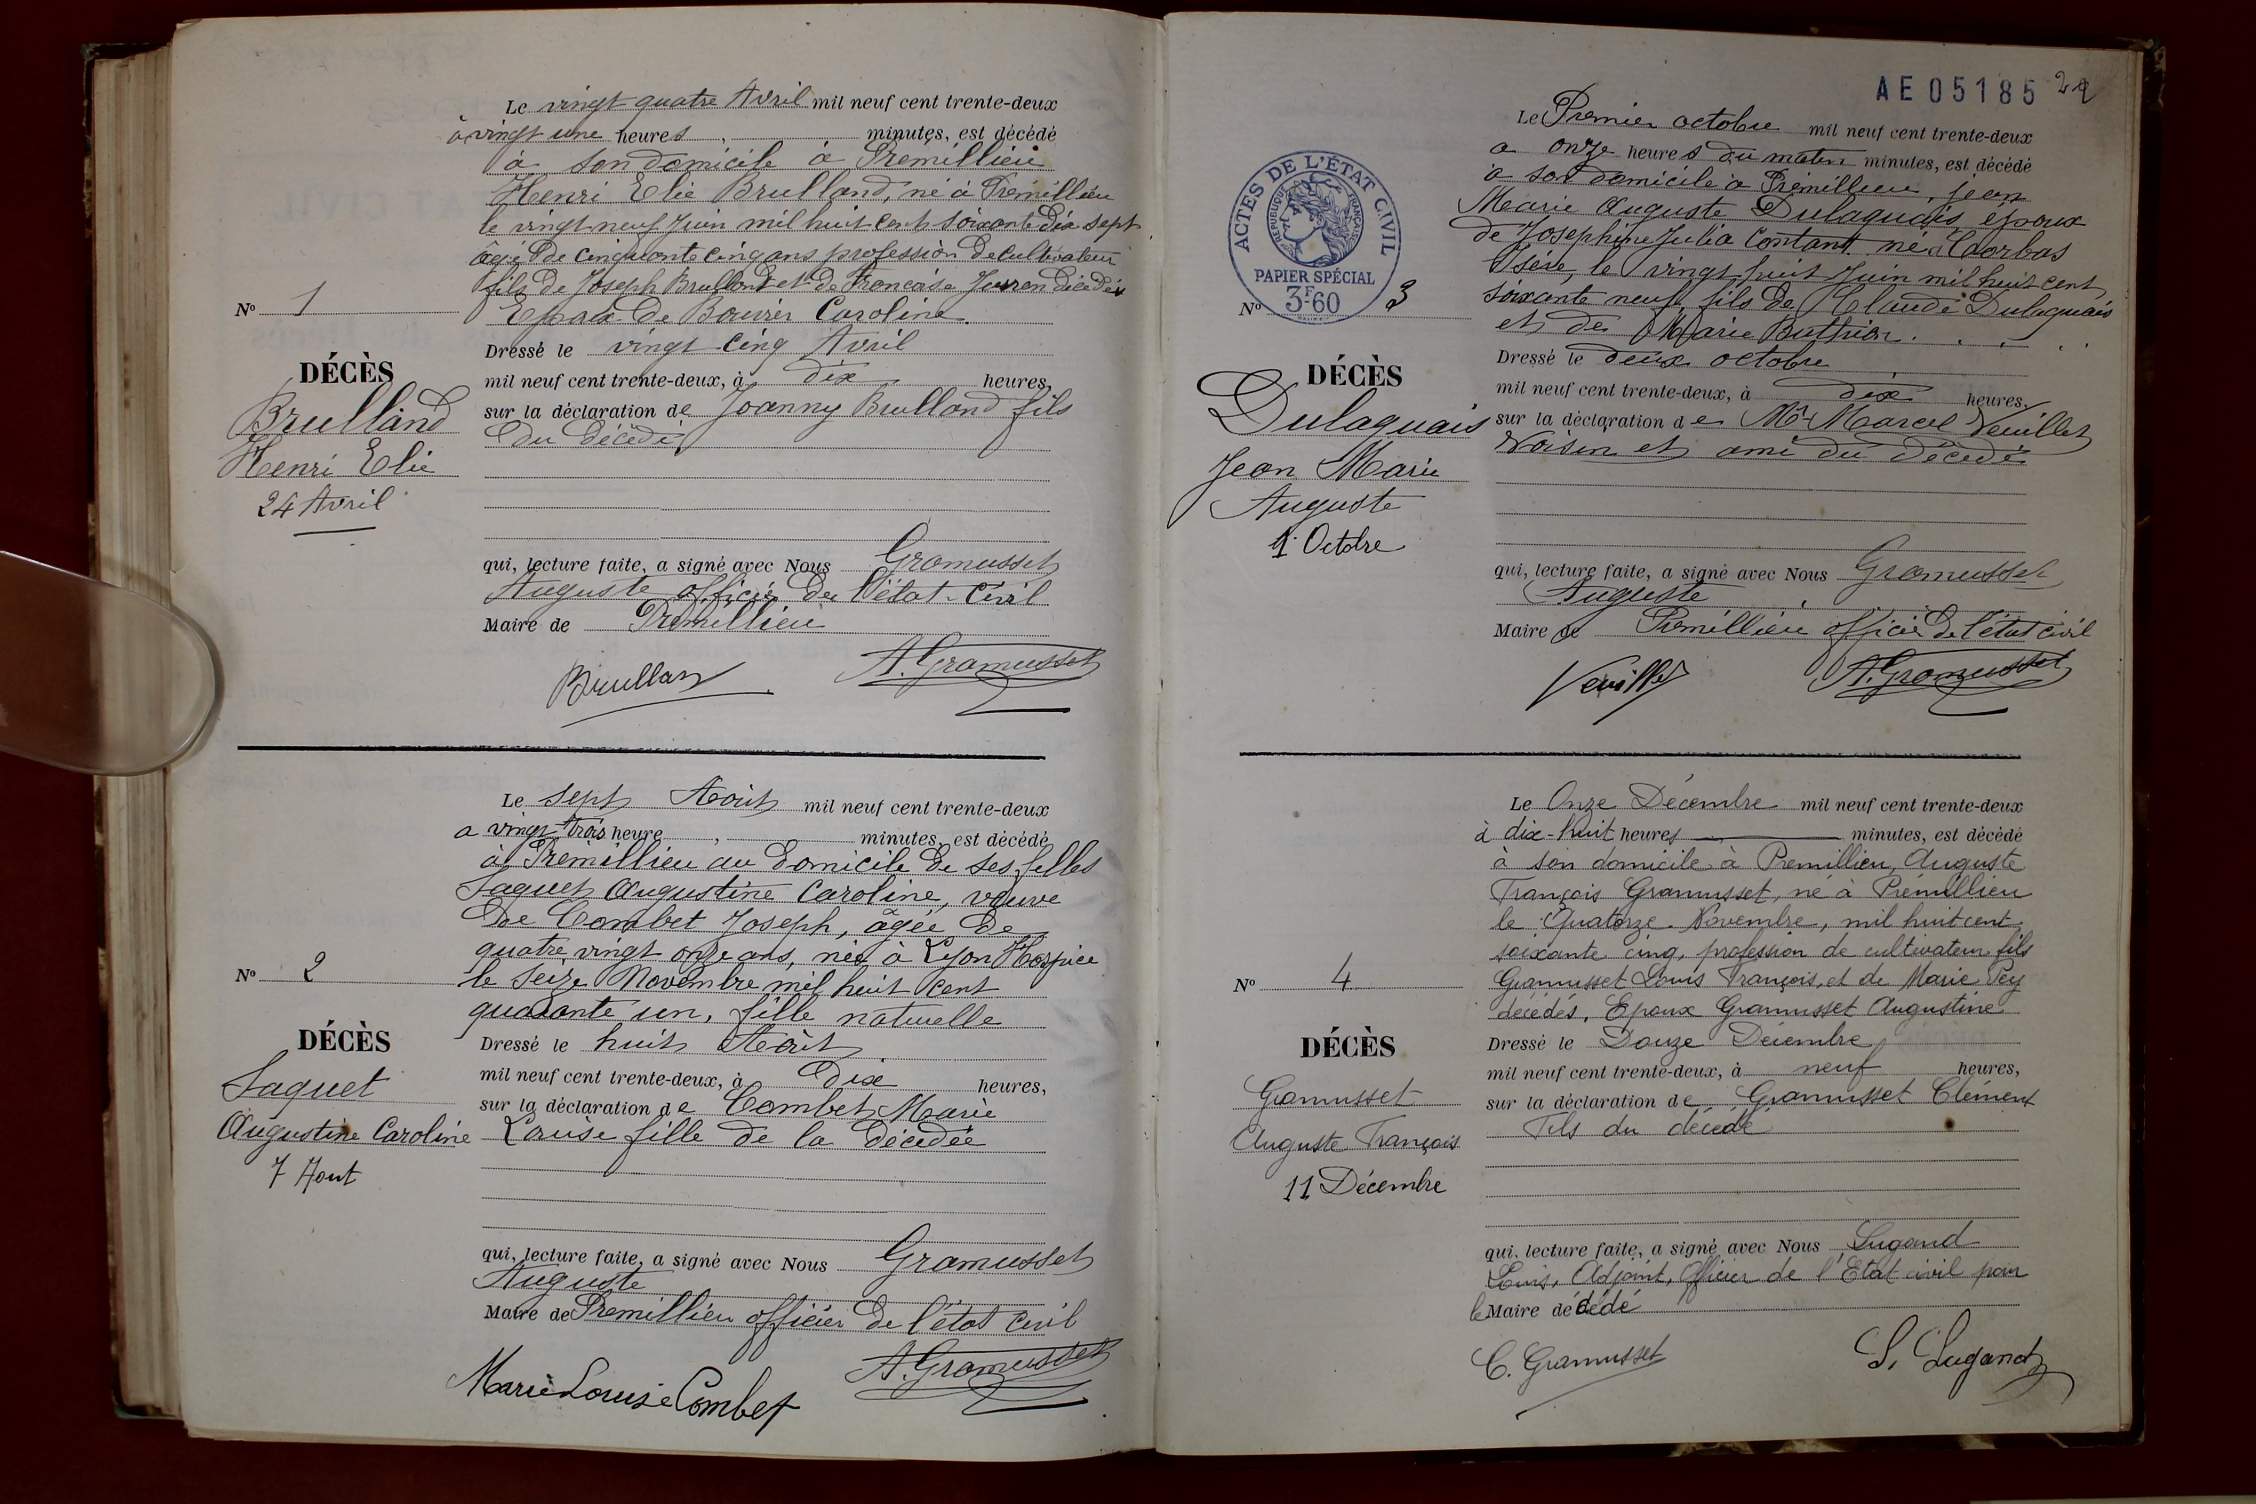 Le vingt quatre Avril mil neuf cent trente-deux
à vingt une heures, minutes, est décédé
à son domicile à Prémillieu
Henri Elie Brulland, né à Prémillieu
le vingt neuf Juin mil huit cent soixante dix sept
âgé de cinquante cinq ans profession de cultivateur
fils de Joseph Brulland et de Francoise décédés
Epoux de Bouvier Caroline.
Nº 1
DÉCÈS
Brulland
Henri Elie
24 Avril
Dressé le vingt cinq Avril
mil neuf cent trente-deux, à dix heures,
sur la déclaration de Joanny Brulland fils
du décédé
qui, lecture faite, a signé avec Nous Gramusset
Auguste officier de l'état-civil
Maire de Prémillieu
Brulland
A. Gramusset
Le sept Août mil neuf cent trente-deux
a vingt trois heure, minutes, est décédé
à Prémillieu au domicile de ses filles
Saquet Augustine Caroline, veuve
de Combet Joseph, âgée de
quatre vingt onze ans, née à Lyon Hospice
le seize Novembre mil huit cent
quarante un, fille naturelle
Nº 2
DÉCÈS
Saquet
Augustine Caroline
7 Aout
Dressé le huit Août
mil neuf cent trente-deux, à Dix heures,
sur la déclaration de Combet Marie
Louise fille de la décédée
qui, lecture faite, a signé avec Nous Gramusset
Auguste
Maire de Premillieu officier de l'état civil
Marie Louise Combet
A. Gramusset
AE05185
ACTES DE L'ÉTAT CIVIL
RÉPUBLIQUE FRANÇAISE
PAPIER SPÉCIAL
3F.60
Le Premier octobre mil neuf cent trente-deux
a onze heures du matin minutes, est décédé
à son domicile à Prémillieu, jean
Marie Auguste Dulaquais époux
de Josephine Julia Contant né à Corbas
Isére, le vingt huit Juin mil huit cent
soixante neuf, fils de Claude Dulaquais
et de Marie Buthion.
Nº 3
DÉCÈS
Dulaquais
Jean Marie
Auguste
1 Octobre
Dressé le deux octobre
mil neuf cent trente-deux, à dix heures,
sur la déclaration de Mr Marcel Veuillet
Voisin et ami du décédé
qui, lecture faite, a signé avec Nous Gramusset
Auguste
Maire de Prémillieu officier de l'état civil
Veuillet
A. Gramusset
Le Onze Décembre mil neuf cent trente-deux
à dix-huit heures minutes, est décédé
à son domicile à Premillieu, Auguste
François Gramusset, né à Prémillieu
le Quatorze Novembre, mil huit cent
soixante cinq, profession de cultivateur fils
Gramusset Louis François, et de Marie Pey
décédés, Epoux Gramusset Augustine
Nº 4
DÉCÈS
Gramusset
Auguste François
11 Décembre
Dressé le Douze Décembre
mil neuf cent trente-deux, à neuf heures,
sur la déclaration de Gramusset Clément
Fils du décédé
qui, lecture faite, a signé avec Nous Lugand
Louis, Adjoint, Officier de l'Etat civil pour
le Maire décédé
C. Gramusset
L. Lugand